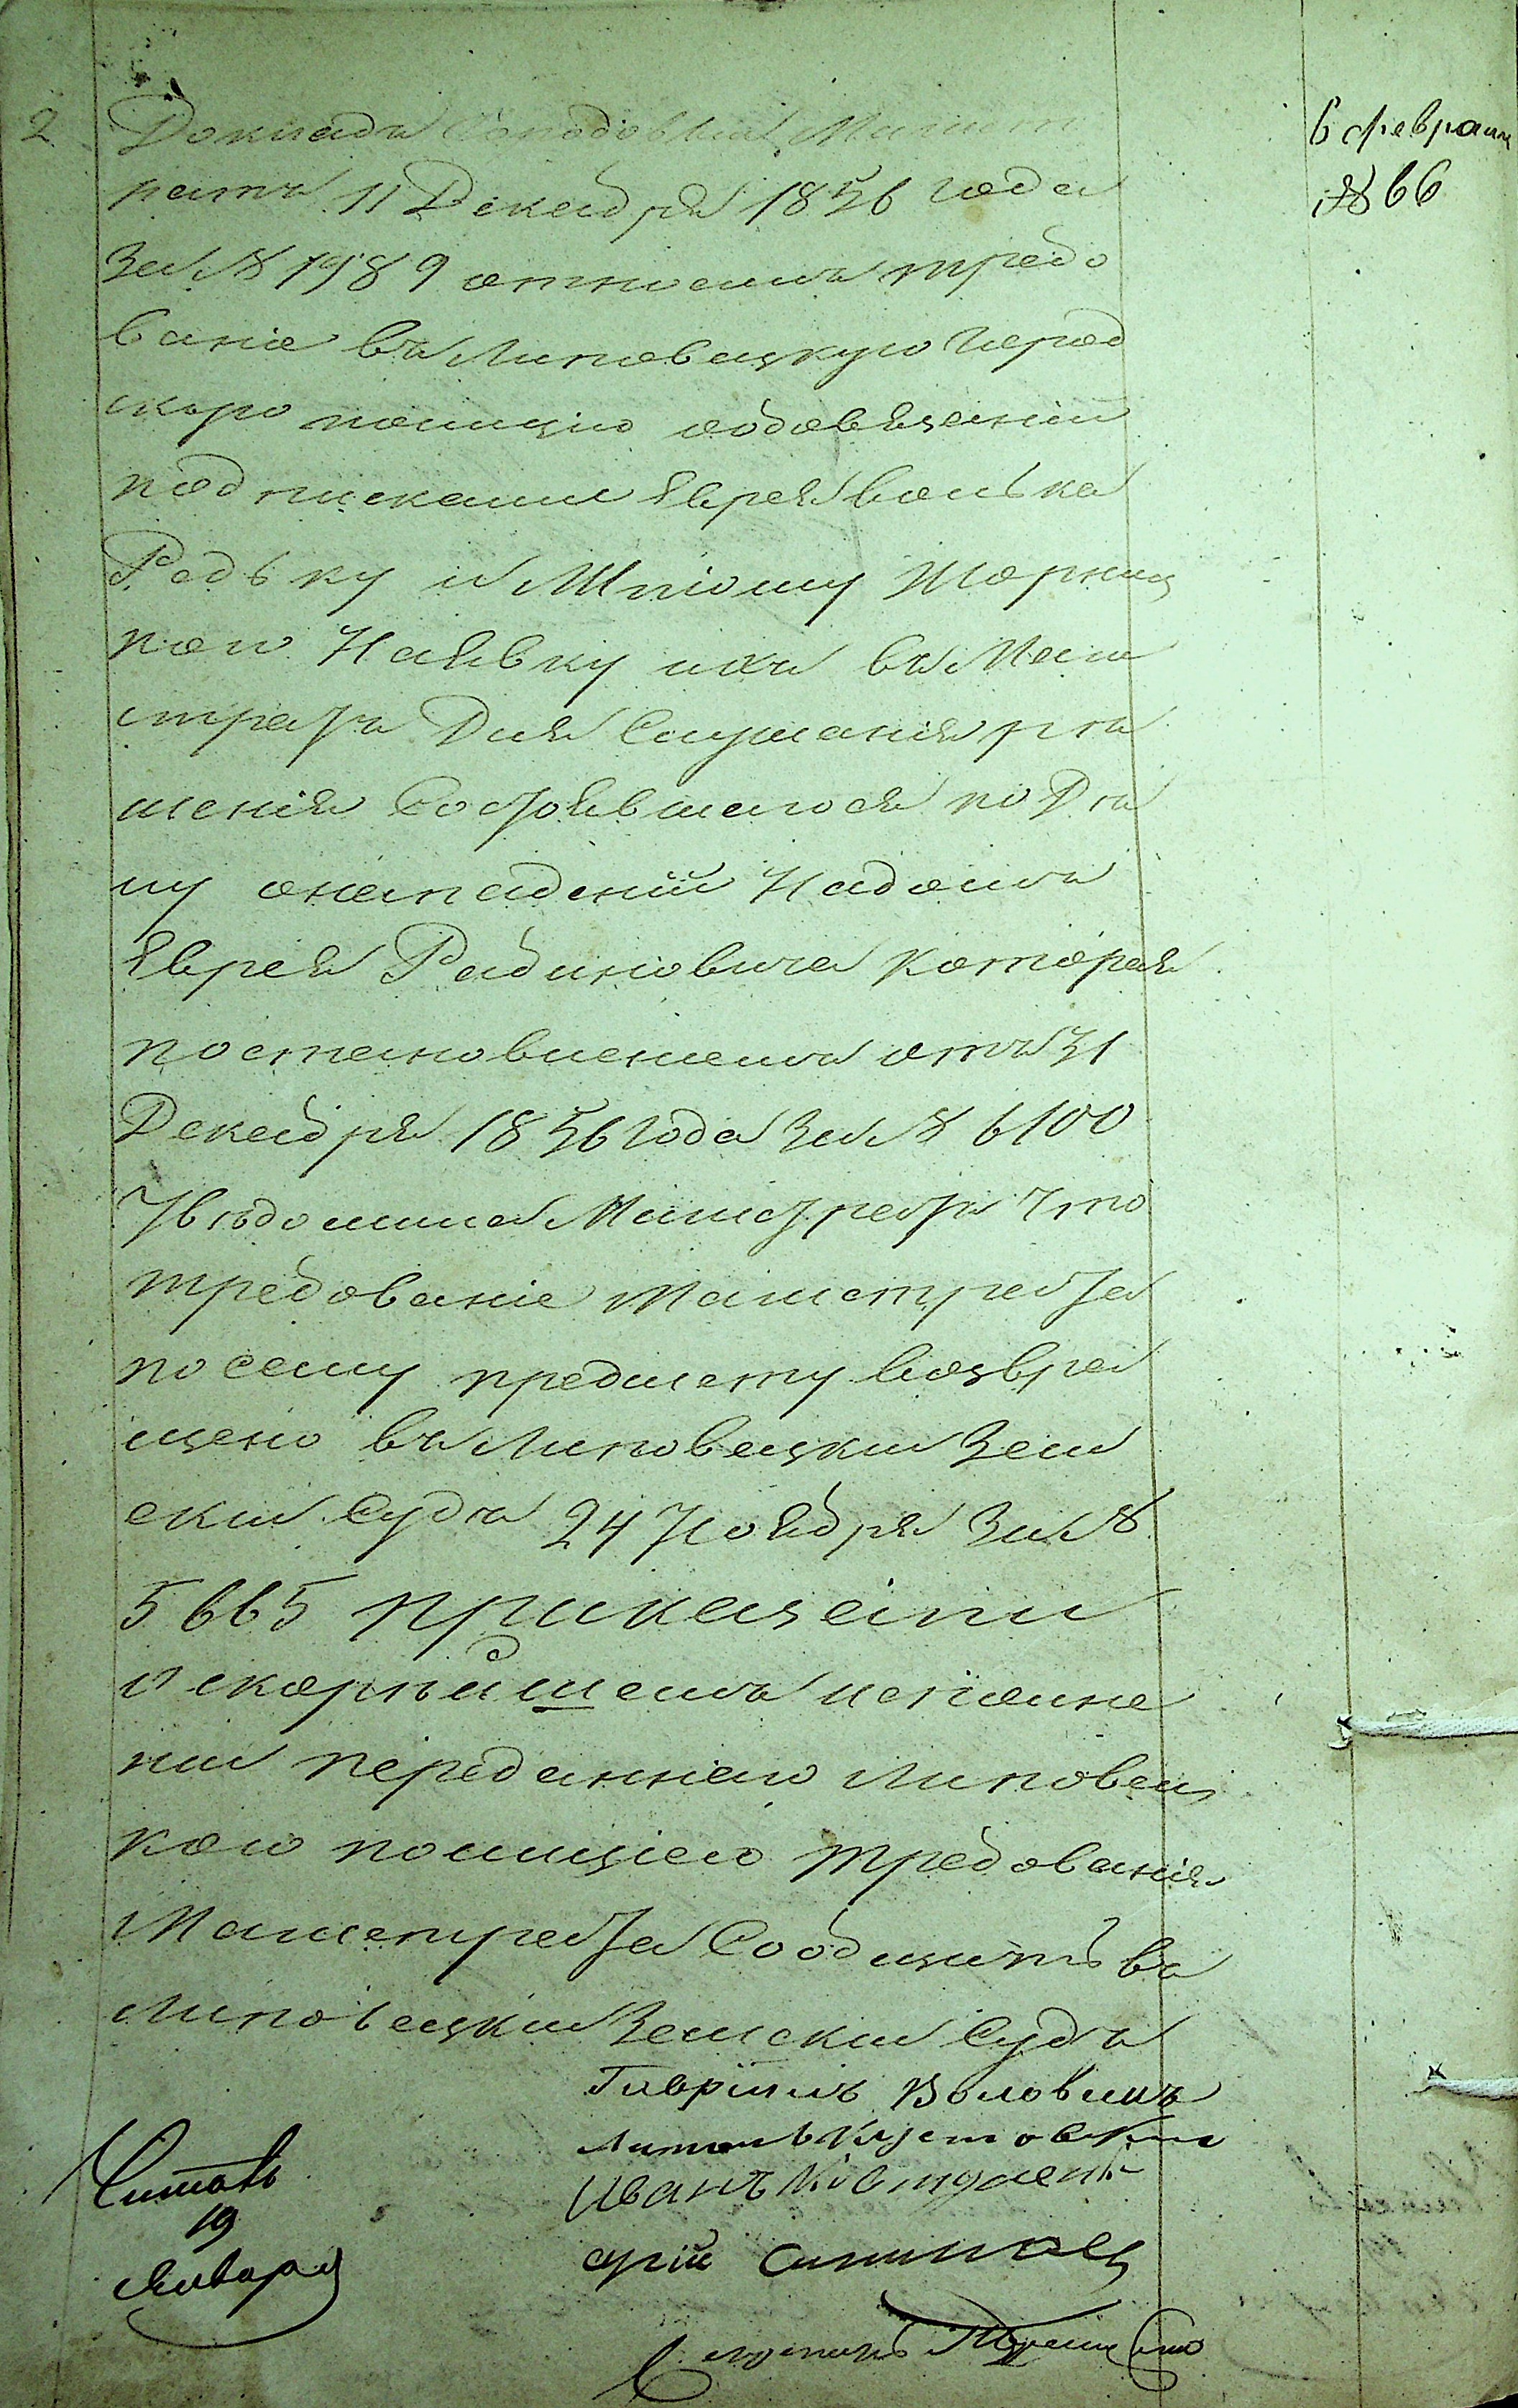 2
6 февраля
№ 66
Докладъ Сей Магист
ратъ 11 Декабря 1856 года
За № 1989 отнесся требо
ваніе въ Липовецкую Город
скую полицію объ объявленіи
подписками Еврея Волька
Редьку и Шліому
кого На явку ихъ въ Маги
стратъ Для Слушанія рѣ
шенія Состоявшагося по Дѣ
лу о нападеніи На домъ
Еврея Рабиновича которая
постановленіемъ отъ 31
Декабря 1856 Года За № 6100
Увѣдомила Магистратъ Что
требованіе Магистрата
по сему предмету возвра
щено въ Липовецкій Зем
скій Судъ 24 Ноября За №
5665 приказали
О скорѣйшемъ исполне
ніи переданнаго Липовец
кою полиціею требованія
Магистрата Сообщить въ
Липовецкій Земскій Судъ
Гавріилъ Воловикъ
Иванъ
Читалъ
19
Января